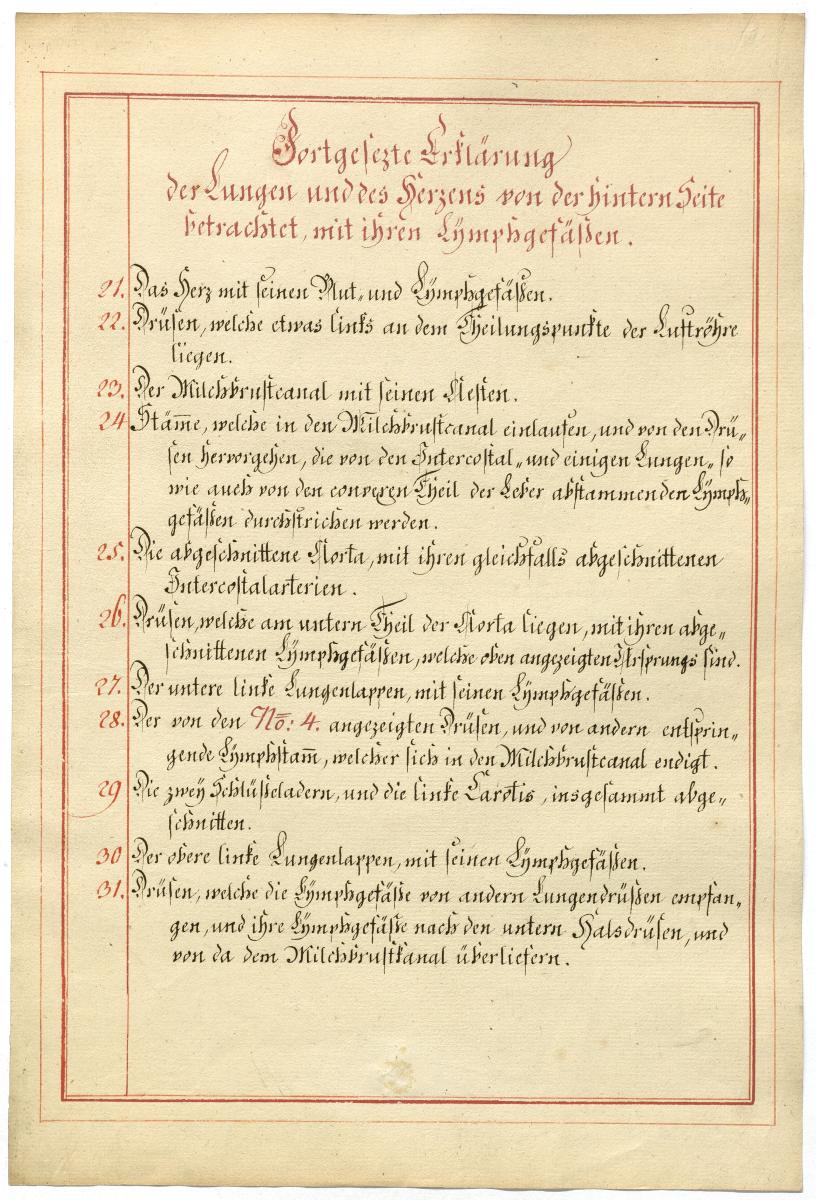 Fortgesezte Erklärung
der Lungen und des Herzens von der hintern Seite
betrachtet, mit ihren Lÿmphgefäßen.
21. Das Herz mit seinen Blut„ und Lÿmphgefäßen.
22. Drüsen, welche etwas links an dem Theilungspunkte der Luftröhre
liegen.
23. Der Milchbrustcanal mit seinen Aesten.
24 Stäm̅e, welche in den Milchbrustcanal einlaufen, und von den Drü„
sen hervorgehen, die von den Intercostal„ und einigen Lungen„ so
wie auch von den convexen Theil der Leber abstammenden Lÿmph„
gefäßen durchstrichen werden.
25. Die abgeschnittene Aorta, mit ihren gleichfalls abgeschnittenen
Intercostalarterien.
26. Drüsen, welche am untern Theil der Aorta liegen, mit ihren abge„
schnittenen Lÿmphgefäßen, welche oben angezeigten Ursprungs sind.
27. Der untere linke Lungenlappen, mit seinen Lÿmphgefäßen.
28. Der von den No: 4. angezeigten Drüsen, und von andern entsprin„
gende Lÿmphstam̅, welcher sich in den Milchbrustcanal endigt.
29 Die zweÿ Schlüßeladern, und die linke Carotis, insgesammt abge„
schnitten.
30 Der obere linke Lungenlappen, mit seinen Lÿmphgefäßen.
31. Drüsen, welche die Lÿmphgefäße von andern Lungendrüßen empfan„
gen, und ihre Lÿmphgefäße nach den untern Halsdrüsen, und
von da dem Milchbrustkanal überliefern.